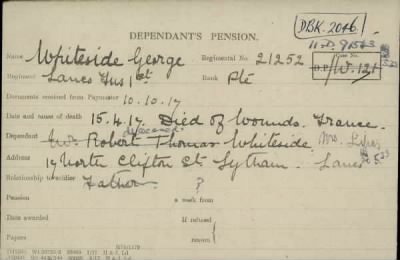 DBK. 2046
DEPENDANT'S PENSION.
D.P. W. 121
Name Whiteside George Regimental No. 21252
Regiment Lancs Fus 1st Rank Pte
Documents received from Paymaster 10.10.17
Date and cause of death 15.4.17. Died of Wounds. France.
deceased
Dependant Mr. Robert Thomas Whiteside Mrs.
Address 17 North Clifton St. Lytham. Lancs
Relationship to soldier Father ?
Pension a week from
Date awarded If refused
Papers reason